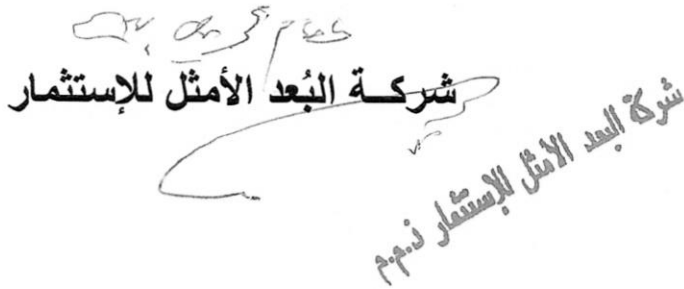 شركــة البُعد الأمثل للإستثمار
شركة البعد الأمثل للإستثمار ذ.م.م